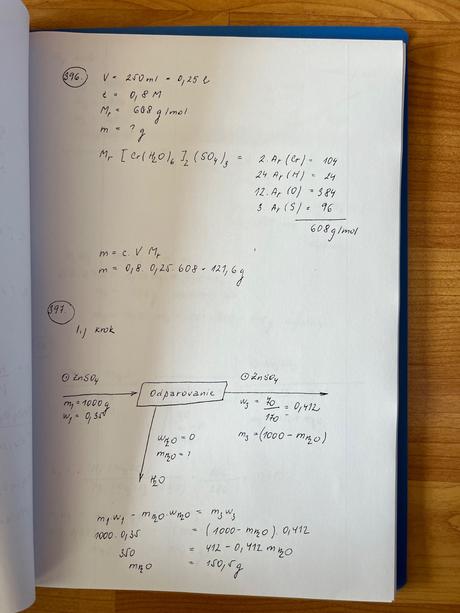 396. V = 250 ml = 0,25 l
c = 0,8 M
Mr = 608 g/mol
m = ? g
Mr [Cr(H2O)6]2(SO4)3 = 2. Ar(Cr) = 104
24 Ar(H) = 24
12. Ar(O) = 384
3. Ar(S) = 96
608 g/mol
m = c. V Mr
m = 0,8. 0,25. 608 = 121,6 g
397.
1.) krok
ZnSO4
m1 = 1000 g
w1 = 0,35
Odparovanie
ZnSO4
w3 = 70/170 = 0,412
m3 = (1000 - mH2O)
wH2O = 0
mH2O = ?
H2O
m1w1 - mH2O. wH2O = m3w3
1000. 0,35 = (1000 - mH2O). 0,412
350 = 412 - 0,412 mH2O
mH2O = 150,5 g